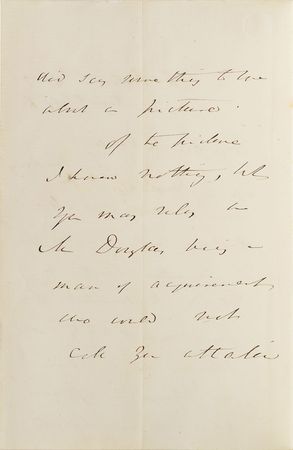 did say something to me
about a picture.
Of the picture
I know nothing, but
you may rely on
Mr Douglas being a
man of acquirement
who would not